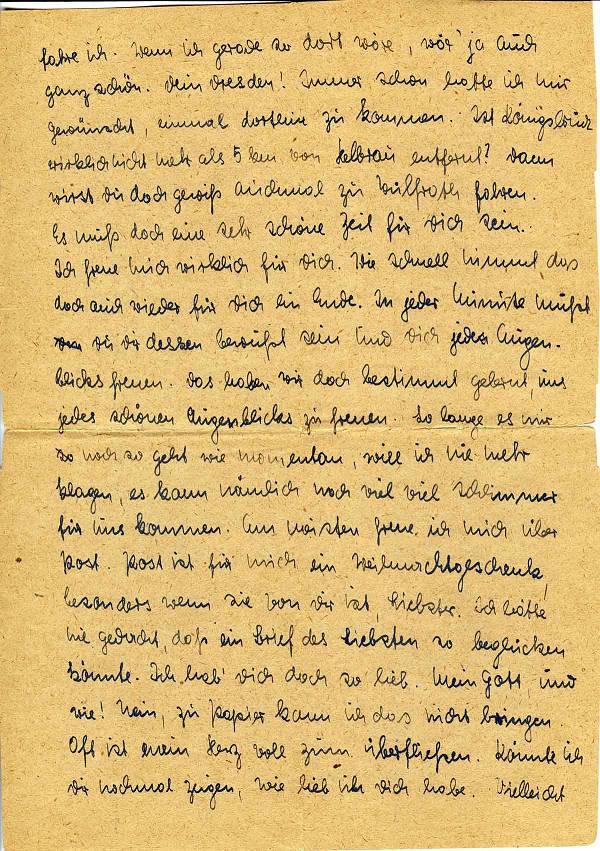 fahre ich. Wenn ich gerade so dort wäre, wär' ja auch
ganz schön. Dein Dresden! Immer schon hatte ich mir
gewünscht, einmal dorthin zu kommen. Ist Königsbrück
wirklich nicht mehr als 5 km von entfernt? Dann
wirst du doch gewiß auch mal zu fahren.
Es muß doch eine sehr schöne Zeit für Dich sein.
Ich freue mich wirklich für Dich. Wie schnell nimmt das
doch auch wieder für Dich ein Ende. In jeder Minute mußt
du dir dessen bewußt sein und dich jeden Augen-
blicks freuen. Das haben wir doch bestimmt gelernt, uns
jedes schönen Augenblicks zu freuen. So lange es mir
so noch so geht wie momentan, will ich nie mehr
klagen, es kann nämlich noch viel viel schlimmer
für uns kommen. Am meisten freue ich mich über
Post. Post ist für mich ein Weihnachtsgeschenk,
besonders wenn sie von dir ist, Liebster. Ich hätte
nie gedacht, daß ein Brief des Liebsten so beglücken
könnte. Ich hab' Dich doch so lieb. Mein Gott, und
wie! Nein, zu Papier kann ich das nicht bringen.
Oft ist mein Herz voll zum überfließen. Könnte ich
dir nochmal zeigen, wie lieb ich dich habe. Vielleicht